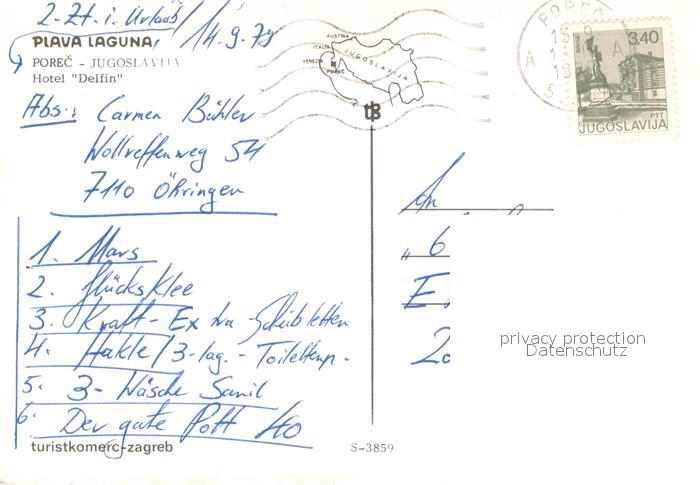 z. Zt. i. Urlaub / 14.9.79
PLAVA LAGUNA,
POREČ - JUGOSLAVIJA
Hotel "Delfin"
AUSTRIA
ITALIA
VENEZIA
JUGOSLAVIJA
POREČ
tB
POREČ
A A
3,40
PTT
JUGOSLAVIJA
Abs.: Carmen Bühler
Wollreffenweg 54
7110 Öhringen
1. Mars
2. Glücksklee
3. Kraft - Extra - Scheibletten
4. Hakle / 3-lag. - Toilettenp.
5. 3 - Wäsche Sanil
6. Der gute Pott 40
An
„ 6
E
privacy protection
Datenschutz
turistkomerc-zagreb
S-3859